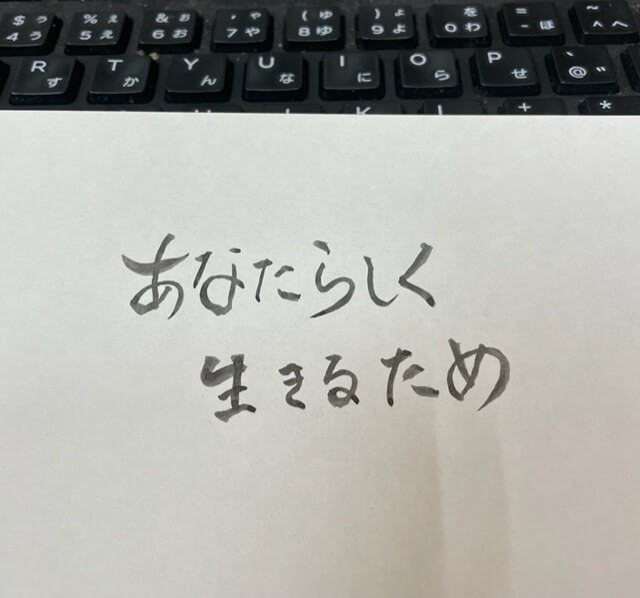 $ う % ぇ & ぉ ' ゃ ( ゅ ) ょ を = ~
4 う 5 え 6 お 7 や 8 ゆ 9 よ 0 わ - ほ ^ へ
R T Y U I O P `
す か ん な に ら せ @ ゛
K L + *
あなたらしく
生きるため